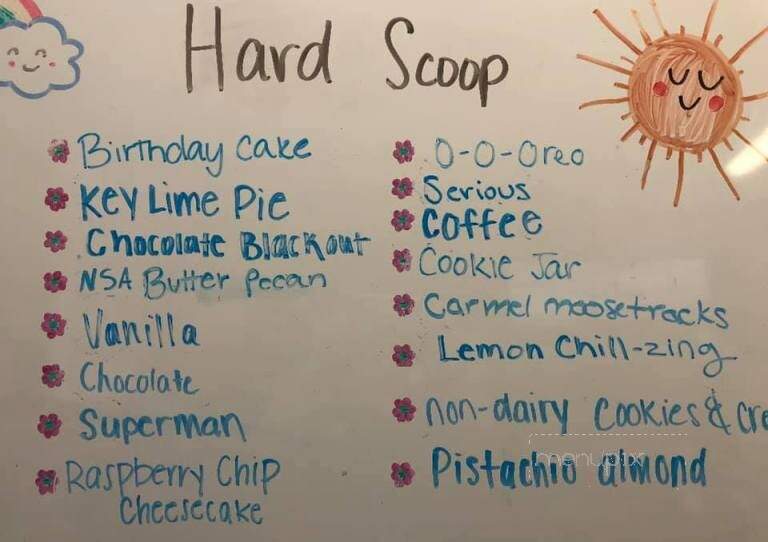 Hard Scoop
Birthday Cake
Key Lime Pie
Chocolate Blackout
NSA Butter Pecan
Vanilla
Chocolate
Superman
Raspberry Chip
Cheesecake
O-O-Oreo
Serious
Coffee
Cookie Jar
Carmel moosetracks
Lemon Chill-zing
non-dairy Cookies & Cre
Pistachio almond
menupix